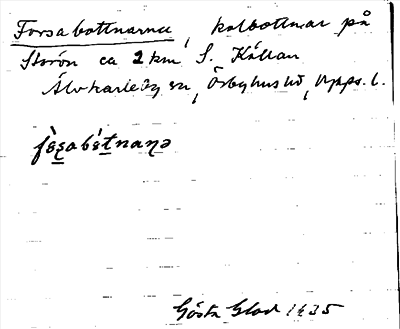 Forsabottnarna, kolbottnar på
Storön ca 2 km S. Källan
Älvkarleby sn, Örbyhus hd, Upps. l.
Gösta Glad 1935